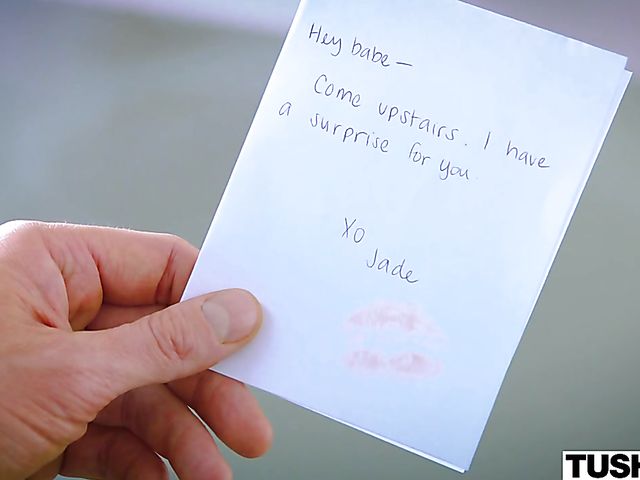 Hey babe—
Come upstairs. I have
a surprise for you.
XO
Jade
TUSH